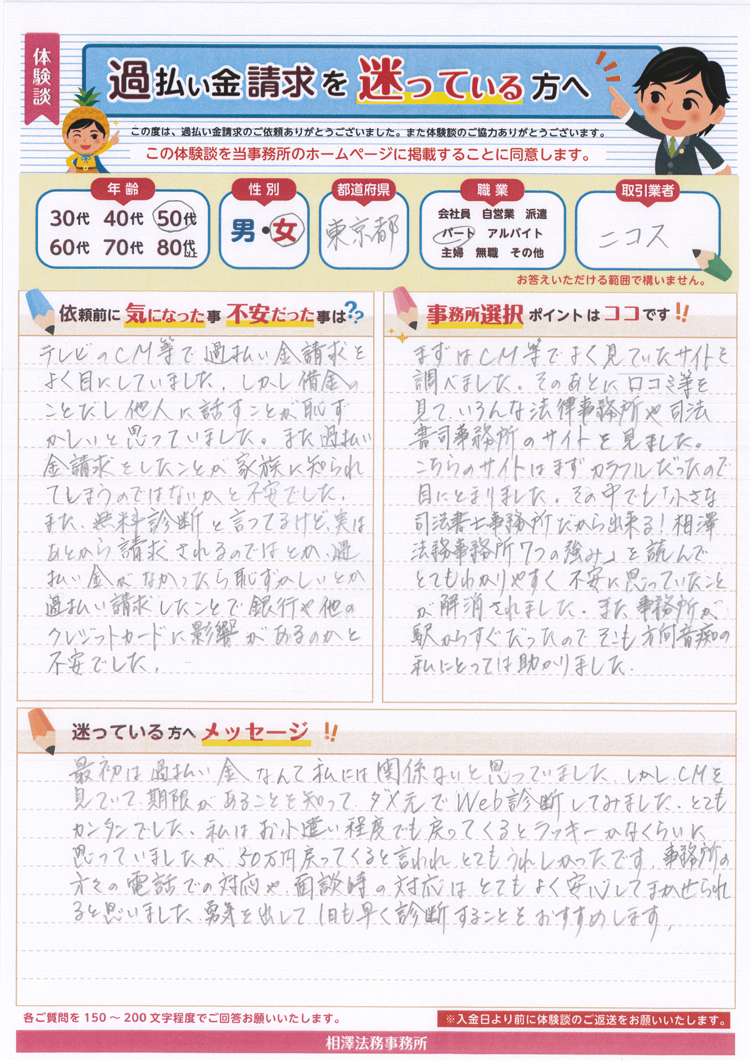 体験談
過払い金請求を迷っている方へ
この度は、過払い金請求のご依頼ありがとうございました。また体験談のご協力ありがとうございます。
この体験談を当事務所のホームページに掲載することに同意します。
年齢
30代 40代 50代
60代 70代 80代以上
性別
男・女
都道府県
東京都
職業
会社員 自営業 派遣
パート アルバイト
主婦 無職 その他
取引業者
ニコス
お答えいただける範囲で構いません。
依頼前に気になった事 不安だった事は??
テレビのCM等で過払い金請求を
よく目にしていました。しかし借金の
ことだし他人に話すことが恥ず
かしいと思っていました。また過払い
金請求をしたことが家族に知られ
てしまうのではないかと不安でした。
また、無料診断と言ってるけど、実は
あとから請求されるのではとか、過
払い金がなかったら恥ずかしいとか
過払い請求したことで銀行や他の
クレジットカードに影響があるのかと
不安でした。
事務所選択ポイントはココです!!
まずはCM等でよく見ていたサイトを
調べました。そのあとに口コミ等を
見て、いろんな法律事務所や司法
書司事務所のサイトを見ました。
こちらのサイトはまずカラフルだったので
目にとまりました。その中でも「小さな
司法書士事務所だから出来る!相澤
法務事務所7つの強み」を読んで
とてもわかりやすく不安に思っていたこと
が解消されました。また事務所が
駅からすぐだったのでそこも方向音痴の
私にとっては助かりました。
迷っている方へメッセージ!!
最初は過払い金なんて私には関係ないと思っていました。しかしCMを
見ていて期限があることを知って、ダメ元でWeb診断してみました。とても
カンタンでした。私はお小遣い程度でも戻ってくるとラッキーかなくらいに
思っていましたが、50万円戻ってくると言われ、とてもうれしかったです。事務所の
方々の電話での対応や、面談時の対応はとてもよく安心してまかせられ
ると思いました。勇気を出して1日も早く診断することをおすすめします。
各ご質問を150〜200文字程度でご回答お願いいたします。
※入金日より前に体験談のご返送をお願いいたします。
相澤法務事務所